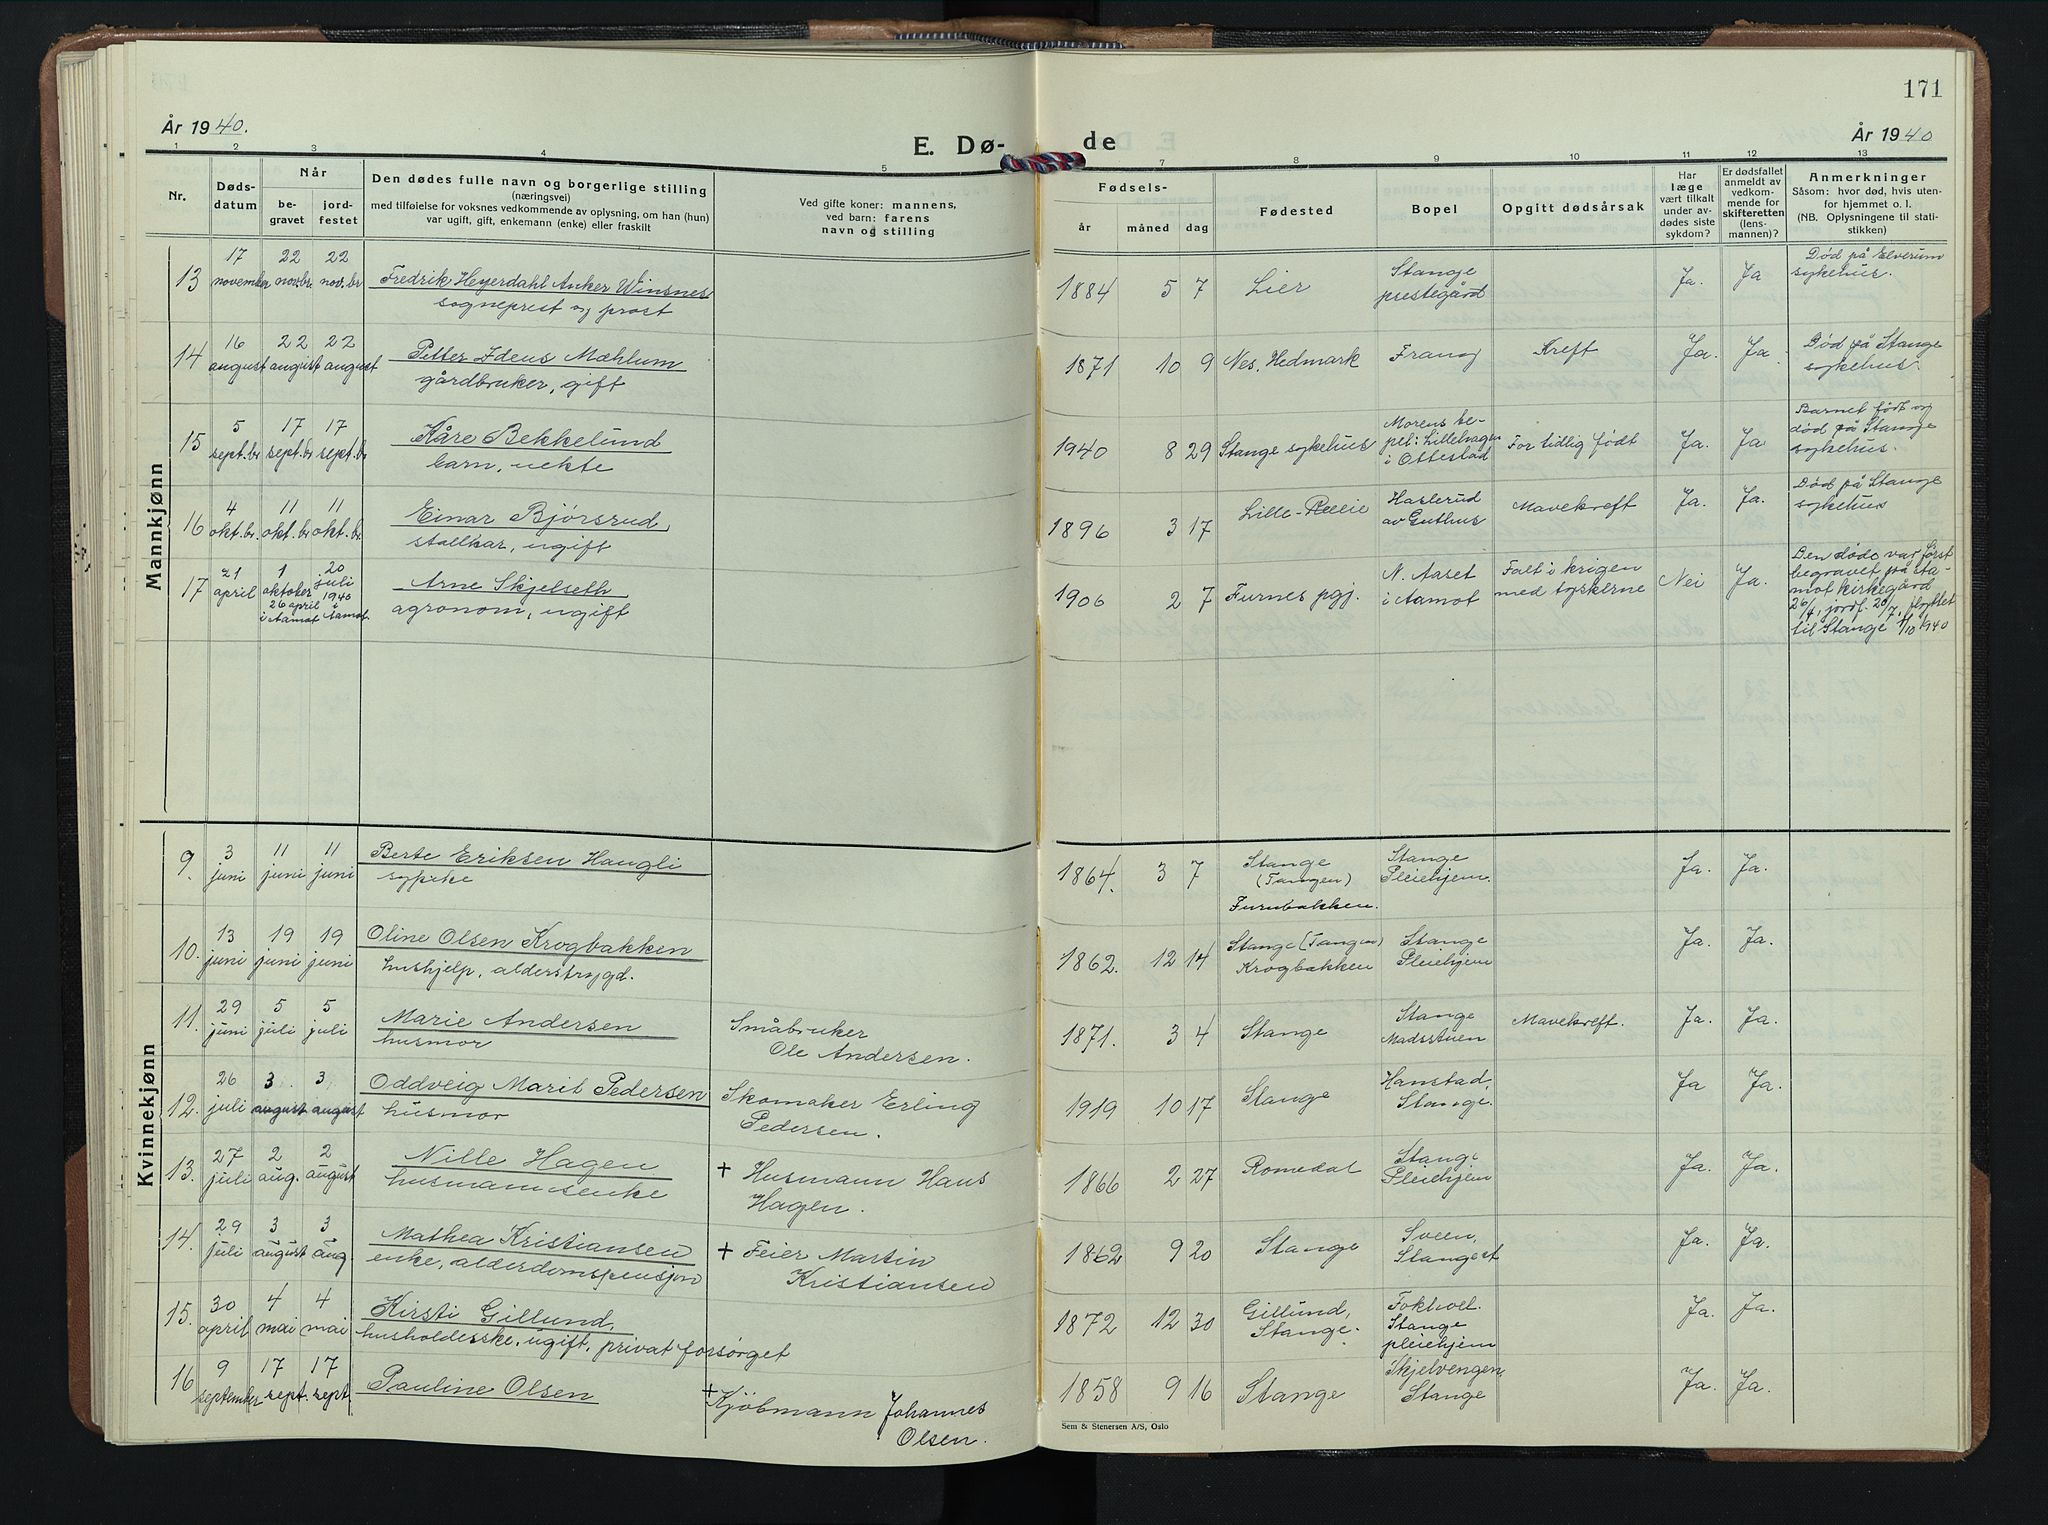 171
År 1940.
E. Dø-
de
År 1940
1 2 3 4 5 7 8 9 10 11 12 13
Nr.
Døds-
datum
Når
be-
gravet
jord-
festet
Den dødes fulle navn og borgerlige stilling
(næringsvei)
med tilføielse for voksnes vedkommende av oplysning, om han (hun)
var ugift, gift, enkemann (enke) eller fraskilt
Ved gifte koner: mannens,
ved barn: farens
navn og stilling
Fødsels-
år
måned
dag
Fødested
Bopel
Opgitt dødsårsak
Har
læge
vært tilkalt
under av-
dødes siste
sykdom?
Er dødsfallet
anmeldt av
vedkom-
mende for
skifteretten
(lens-
mannen)?
Anmerkninger
Såsom: hvor død, hvis uten-
for hjemmet o. l.
(NB. Oplysningene til stati-
stikken)
Mannkjønn
13
17 november
22 nov.br
22 nov.br
Fredrik Heyerdahl Anker Winsnes
sogneprest og prost
1884 5 7
Lier
Stange
prestegård
Ja.
Ja
Død på Elverum
sykehus.
14
16 august
22 august
22 august
Petter Ideus Mæhlum
gårdbruker, gift
1871 10 9
Nes, Hedmark
Frang
Kreft
Ja.
Ja.
Død på Stange
sykehus.
15
5 sept.br
17 sept.br
17 sept.br
Kåre Bekkelund
barn, uekte
1940 8 29
Stange sykehus
Morens bo-
pel: Lillehagen
i Ottestad
For tidlig født
Ja.
Ja
Barnet født og
død på Stange
sykehus.
16
4 okt.br.
11 okt.br
11 okt.br
Einar Bjørsrud
stallkar, ugift
1896 3 17
Lille-
Haslerud
av Guthus
Mavekreft
Ja.
Ja.
Død på Stange
sykehus
17
21 april
1 oktober
26 april
i Aamot
20 juli
1940
i Aamot.
Arne Skjelseth
agronom, ugift
1906 2 7
Furnes pgj.
N. Aaset
i Aamot
Falt i krigen
med tyskerne
Nei
Ja.
Den døde var først
begravet på Aa-
mot kirkegård
26/4, jordf. 20/7, flyttet
til Stange 1/10 1940
Kvinnekjønn
9.
3 juni
11 juni
11 juni
Berte Eriksen Haugli
sypike
1864. 3 7
Stange
(Tangen)
Furubakken.
Stange
Pleiehjem.
Ja.
Ja.
10.
13 juni
19 juni
19 juni
Oline Olsen Krogbakken
hushjelp, alderstrygd.
1862. 12 14
Stange (Tangen)
Krogbakken
Stange
Pleiehjem
Ja.
Ja.
11.
29 juni
5 juli
5 juli
Marie Andersen
husmor
Småbruker
Ole Andersen.
1871. 3 4
Stange
Stange
Madsstuen
Mavekreft.
Ja.
Ja.
12.
26 juli
3 august
3 august
Oddveig Marit Pedersen
husmor
Skomaker Erling
Pedersen.
1919 10 17
Stange
Hanstad,
Stange.
Ja
Ja.
13.
27 juli
2 aug.
2 august
Nille Hagen
husmannsenke
+ Husmann Hans
Hagen.
1866 2 27
Romedal
Stange
Pleiehjem
Ja.
Ja.
14.
29 juli
3 august
3 aug.
Mathea Kristiansen
enke, alderdomspensjon
+ Feier Martin
Kristiansen
1862 9 20
Stange
Sveen,
Stange st
Ja.
Ja.
15.
30 april
4 mai
4 mai
Kirsti Gillund,
husholderske, ugift, privat forsørget
1872 12 30
Gillund,
Stange.
Fokhol.
Stange
pleiehjem
Ja.
Ja.
16
9 september
17 sept.
17 sept.
Pauline Olsen
+ Kjöbmann Johannes
Olsen.
1858 9 16
Stange
Skjelvengen,
Stange
Ja.
Ja.
Sem & Stenersen A/S, Oslo